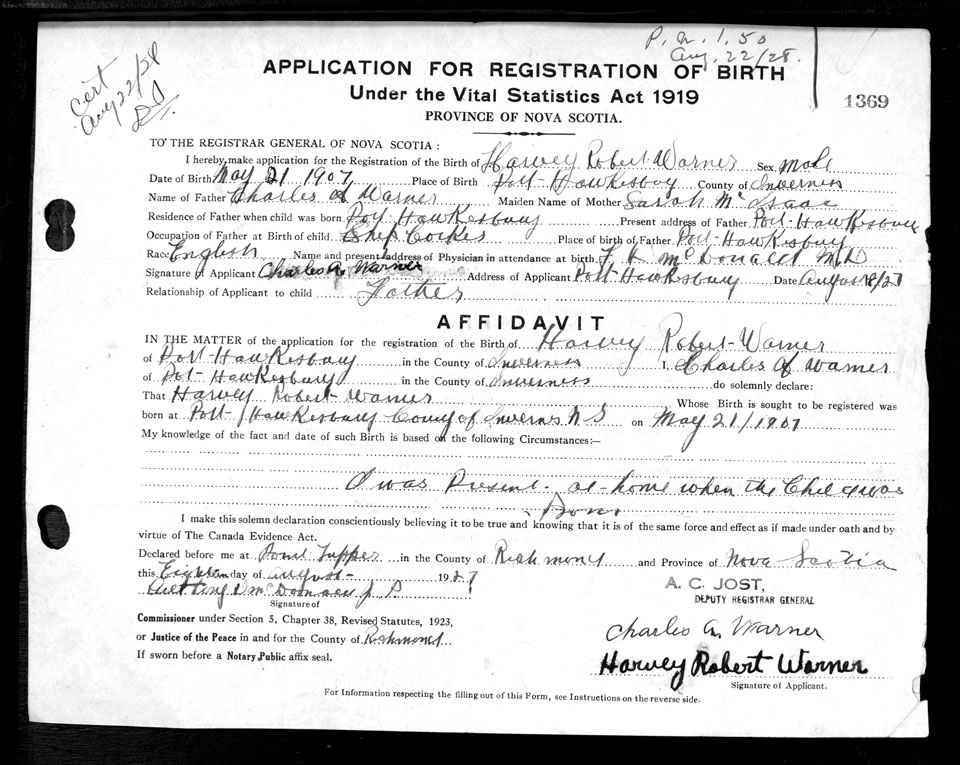 P. N. 1.50
Aug. 22/28.
Cert
Aug 22/28
APPLICATION FOR REGISTRATION OF BIRTH
Under the Vital Statistics Act 1919
PROVINCE OF NOVA SCOTIA.
1369
TO THE REGISTRAR GENERAL OF NOVA SCOTIA:
I hereby make application for the Registration of the Birth of Harvey Robert Warner Sex Male
Date of Birth May 21 1907, Place of Birth Port-Hawkesbury County of Inverness
Name of Father Charles A Warner Maiden Name of Mother Sarah McIsaac
Residence of Father when child was born Port Hawkesbury Present address of Father Port-Hawkesbury
Occupation of Father at Birth of child Ship Place of birth of Father Port-Hawkesbury
Race English Name and present address of Physician in attendance at birth McDonald MD
Signature of Applicant Charles A. Warner Address of Applicant Port Hawkesbury Date August 18/27
Relationship of Applicant to child Father
AFFIDAVIT
IN THE MATTER of the application for the registration of the Birth of Harvey Robert-Warner
of Port-Hawkesbury in the County of Inverness I, Charles A Warner
of Port-Hawkesbury in the County of Inverness do solemnly declare:
That Harvey Robert-Warner Whose Birth is sought to be registered was
born at Port-Hawkesbury County of Inverness N S on May 21/1907
My knowledge of the fact and date of such Birth is based on the following Circumstances:—
I was Present- at-home when the Child was
Born
I make this solemn declaration conscientiously believing it to be true and knowing that it is of the same force and effect as if made under oath and by
virtue of The Canada Evidence Act.
Declared before me at Point Tupper in the County of Richmond and Province of Nova Scotia
this day of August- 1927
J. P.
A. C. JOST,
DEPUTY REGISTRAR GENERAL
Signature of
Commissioner under Section 5, Chapter 38, Revised Statutes, 1923,
or Justice of the Peace in and for the County of Richmond
If sworn before a Notary Public affix seal.
Charles A. Warner
Harvey Robert Warner
Signature of Applicant.
For Information respecting the filling out of this Form, see Instructions on the reverse side.